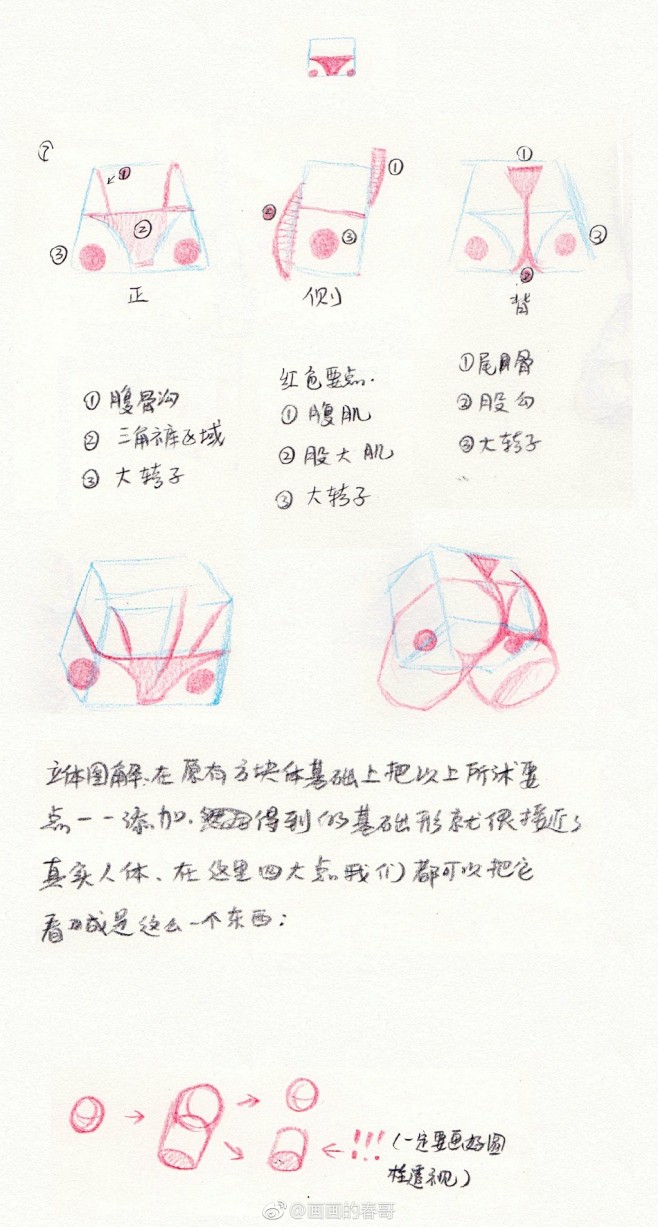 ①
① ② ③
正
① ② ③
侧
① ② ③
背
① 腹骨沟
② 三角裤区域
③ 大转子
红色要点.
① 腹肌
② 股大肌
③ 大转子
① 尾骨
② 股勾
③ 大转子
立体图解、在原有方块体基础上把以上所述要
点一一添加.得到的基础形就很接近了
真实人体、在这里四大点我们都可以把它
看成是这么一个东西:
!!! (一定要画好圆
柱透视)
@画画的春哥